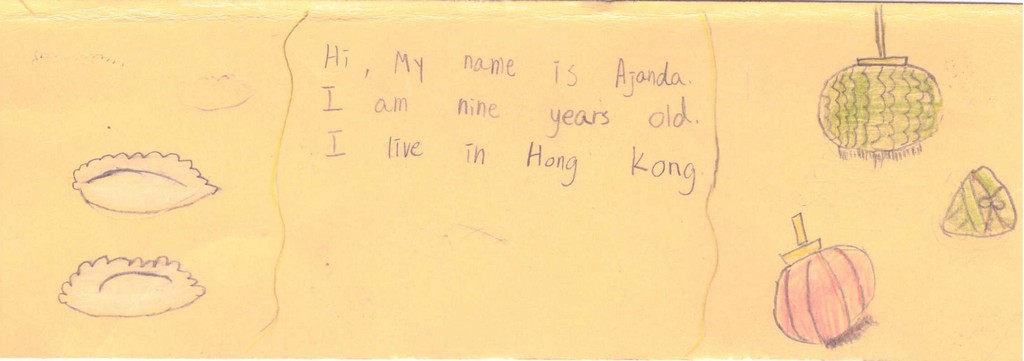 Hi, My name is Ajanda.
I am nine years old.
I live in Hong Kong